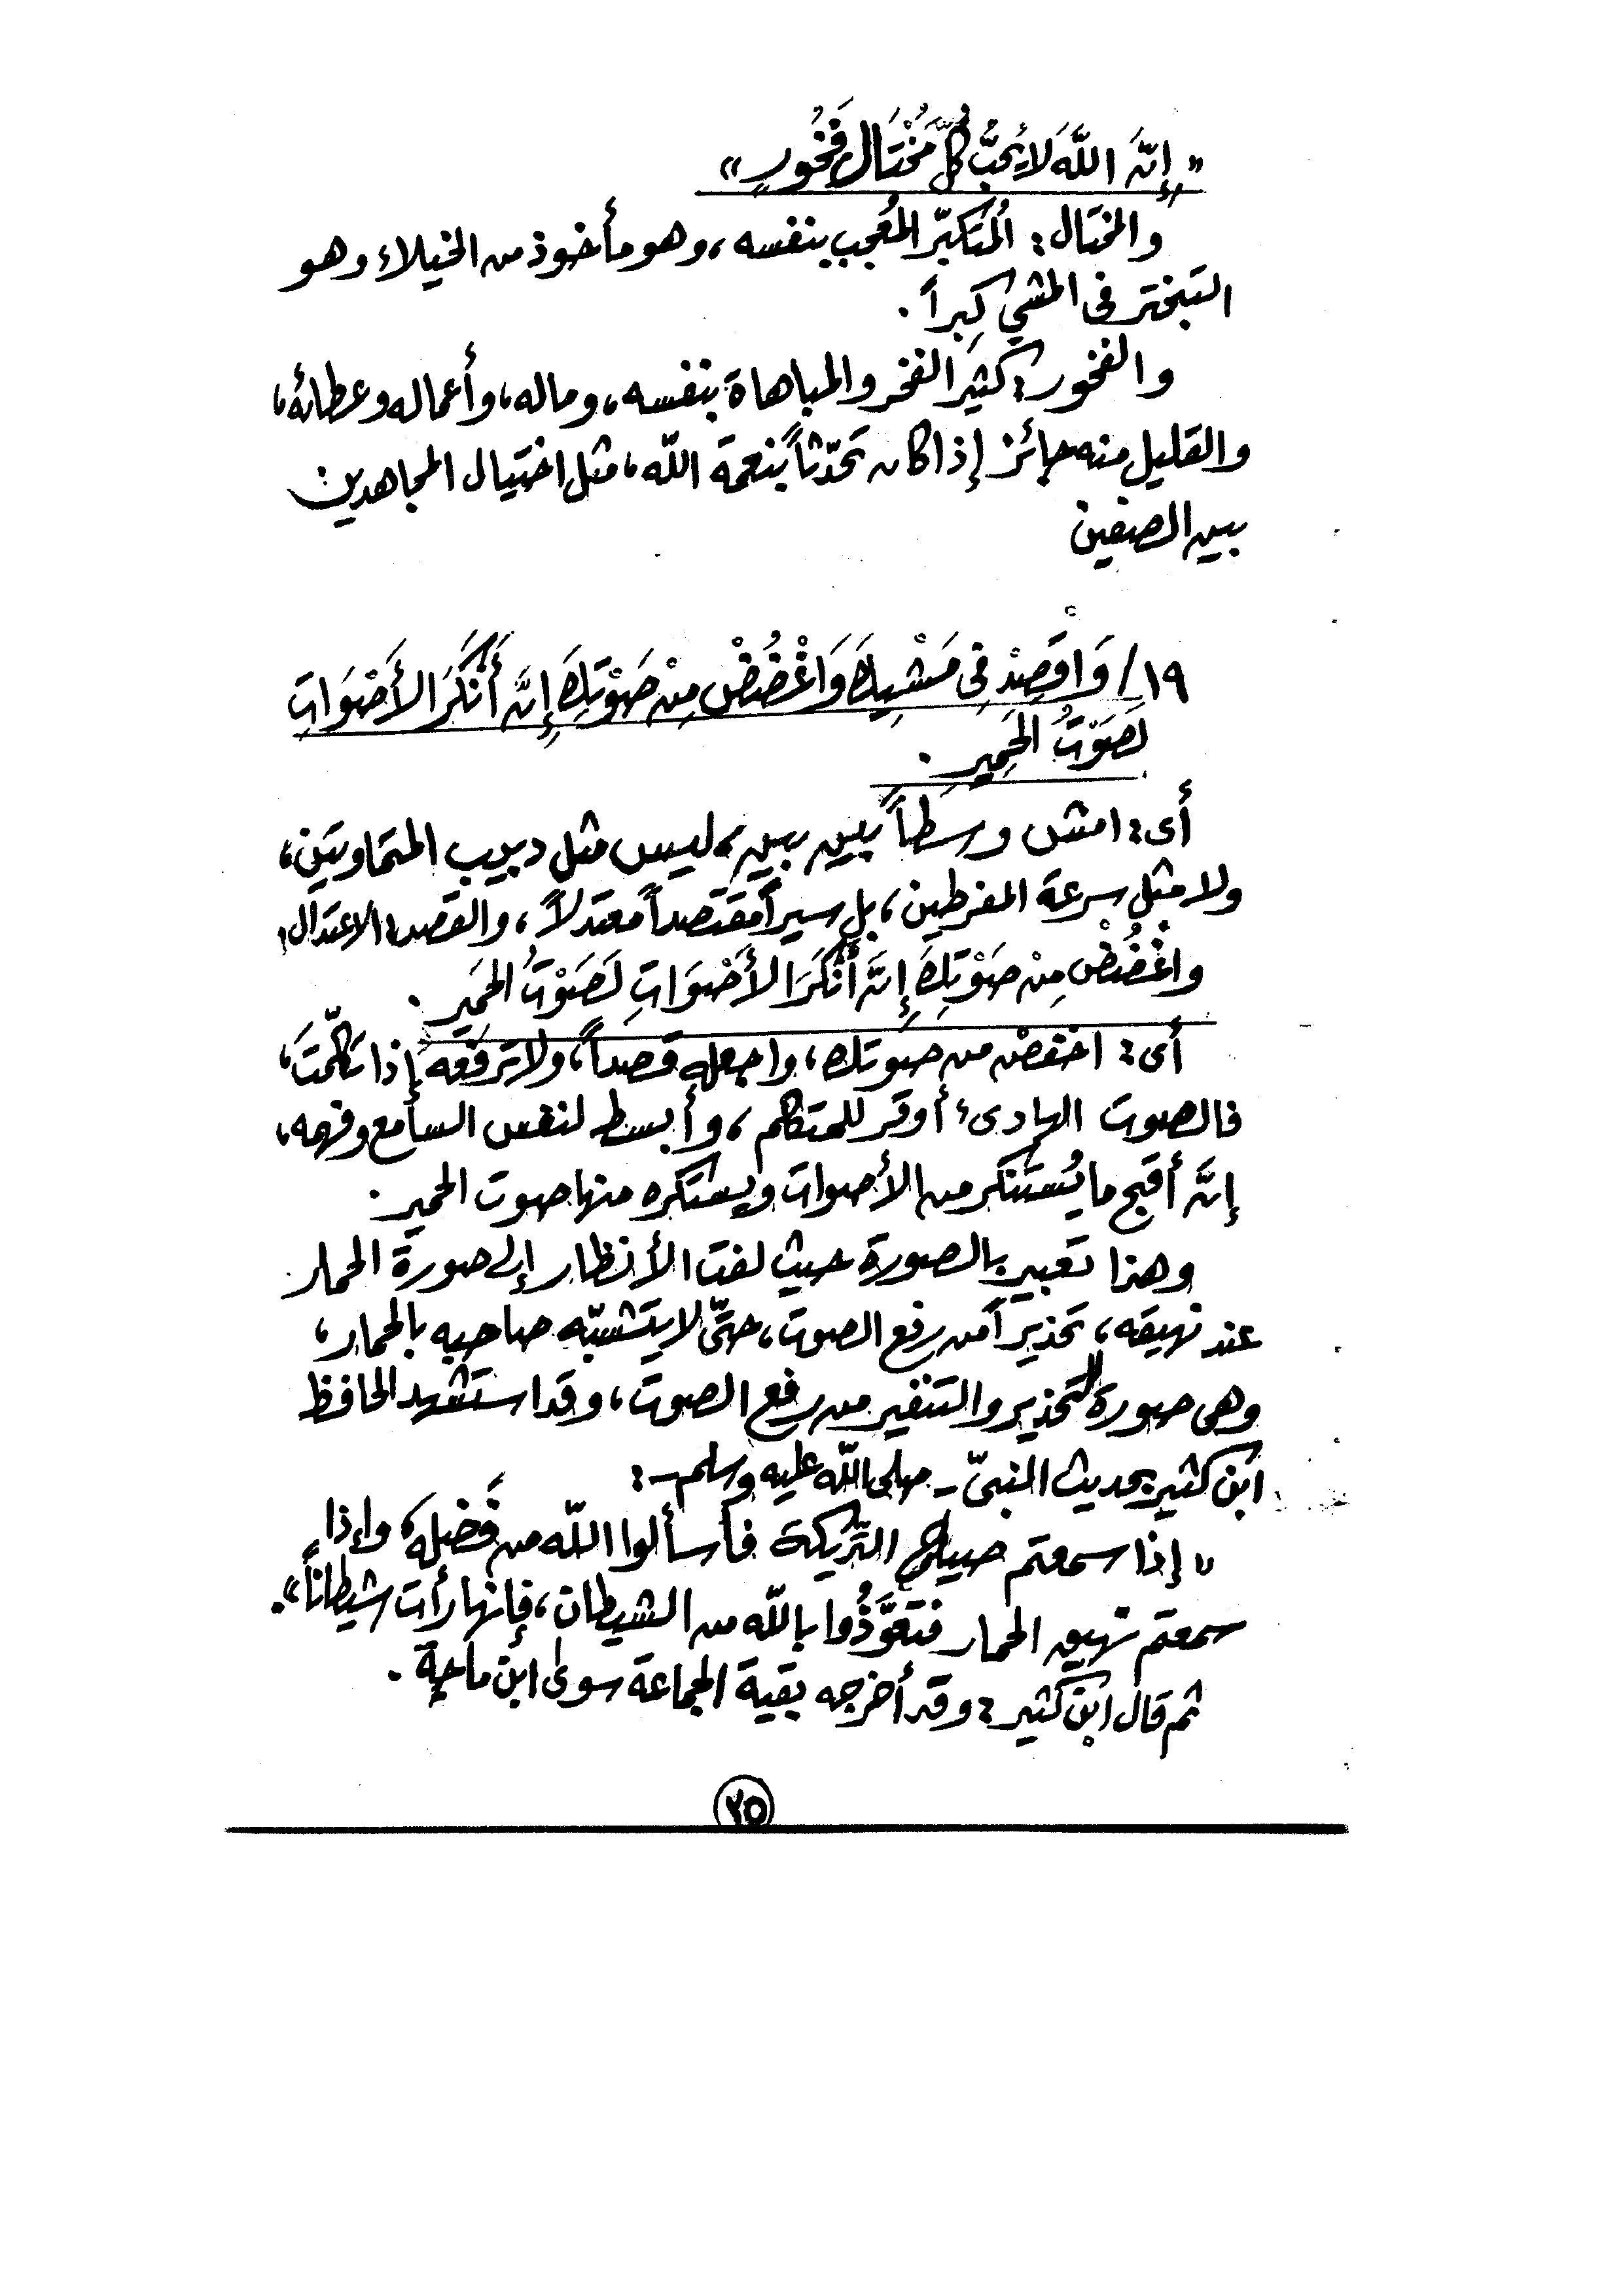 « إِنَّ اللَّهَ لَا يُحِبُّ كُلَّ مُخْتَالٍ فَخُورٍ »
والمختال : المُتكبّر المُعجب بنفسه ، وهو مأخوذ من الخيلاء وهو
التبختر فى المشي كِبراً .
والفخور : كثير الفخر والمباهاة بنفسه ، وماله ، وأعماله وعطائه ،
والقليل منه جائز إذا كان تحدّثاً بنعمة اللّه ، مثل اختيال المجاهدين
بين الصفين
١٩/ وَاقْصِدْ فِى مَشْيِكَ وَاغْضُضْ مِنْ صَوْتِكَ إِنَّ أَنْكَرَ الأَصْوَاتِ
لَصَوْتُ الحَمِيرِ .
أى : امش وسطاً بين بين ، ليس مثل دبيب المتماوتين ،
ولا مثل سرعة المفرطين ، بل سيراً مقتصداً معتدلاً ، والقصد : الاعتدال ،
واغْضُضْ مِنْ صَوْتِكَ إِنَّ أَنْكَرَ الأَصْوَاتِ لَصَوْتُ الحَمِير .
أى : اخفض من صوتك ، واجعله قصداً ، ولا ترفعه إذا تكلّمتَ ،
فالصوت الهادئ أوقر للمتكلم ، وأبسط لنفس السامع وفهمه ،
إنَّ أقبح ما يُستنكر من الأصوات ويستكره منها صوت الحمير .
وهذا تعبير بالصورة حيث لفت الأنظار إلى صورة الحمار
عند نهيقه ، تحذيراً من رفع الصوت ، حتّى لا يتشبّه صاحبه بالحمار ،
وهى صورة للتحذير والتنفير من رفع الصوت ، وقد استشهد الحافظ
ابن كثير بحديث النبىّ - صلى اللّه عليه وسلم - :
« إذا سمعتم صياح الدِّيكة فاسألوا اللّه من فَضله ، وإذا
سمعتم نهيق الحمار فتعوَّذُوا باللّه من الشيطان ، فإنها رأت شيطاناً » .
ثم قال ابن كثير : وقد أخرجه بقية الجماعة سوى ابن ماجة .
٢٥